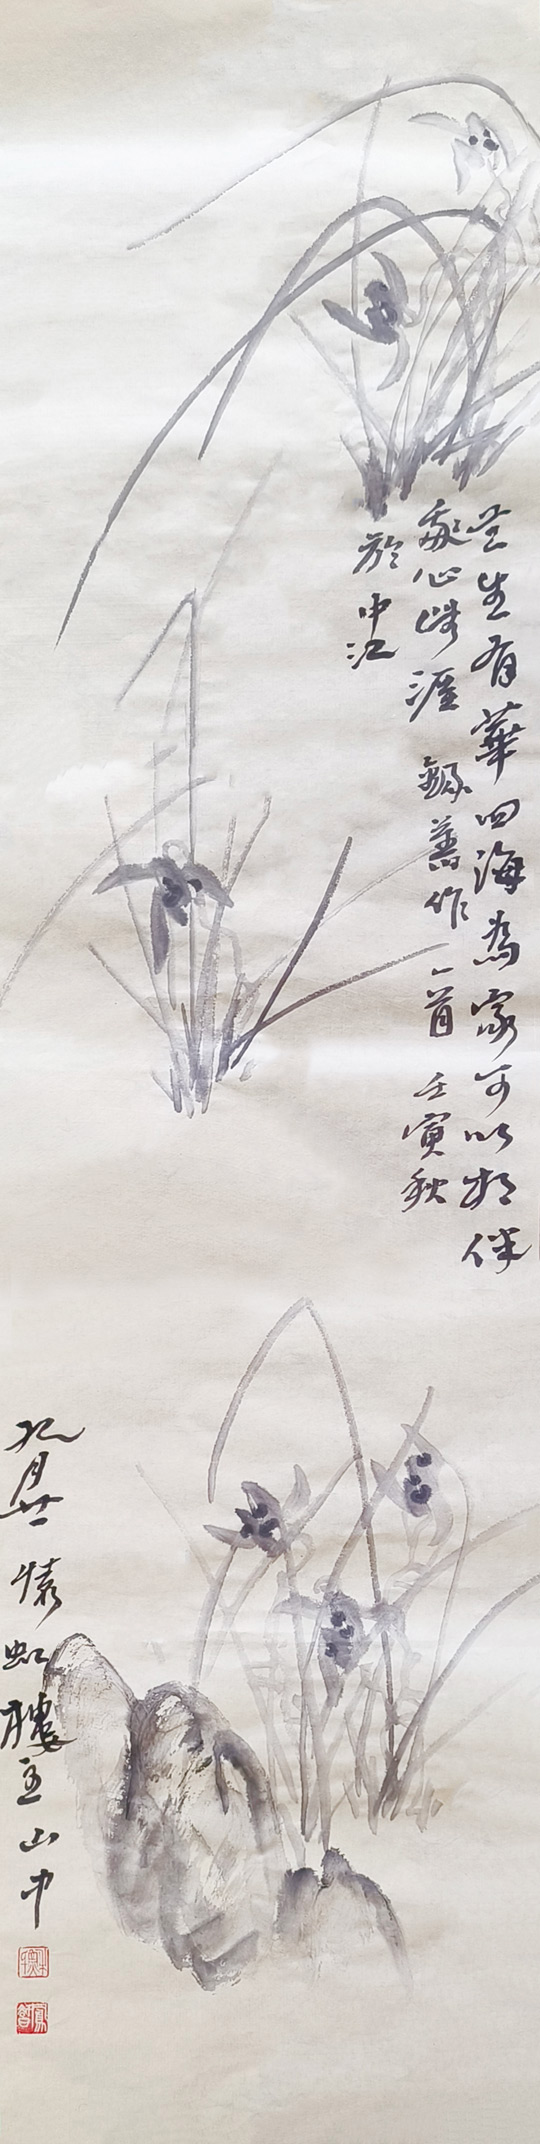 兰生有華四海為家可以相伴
心涯 録舊作一首 壬寅秋
於中江
九月廿一 懷虹樓主山中